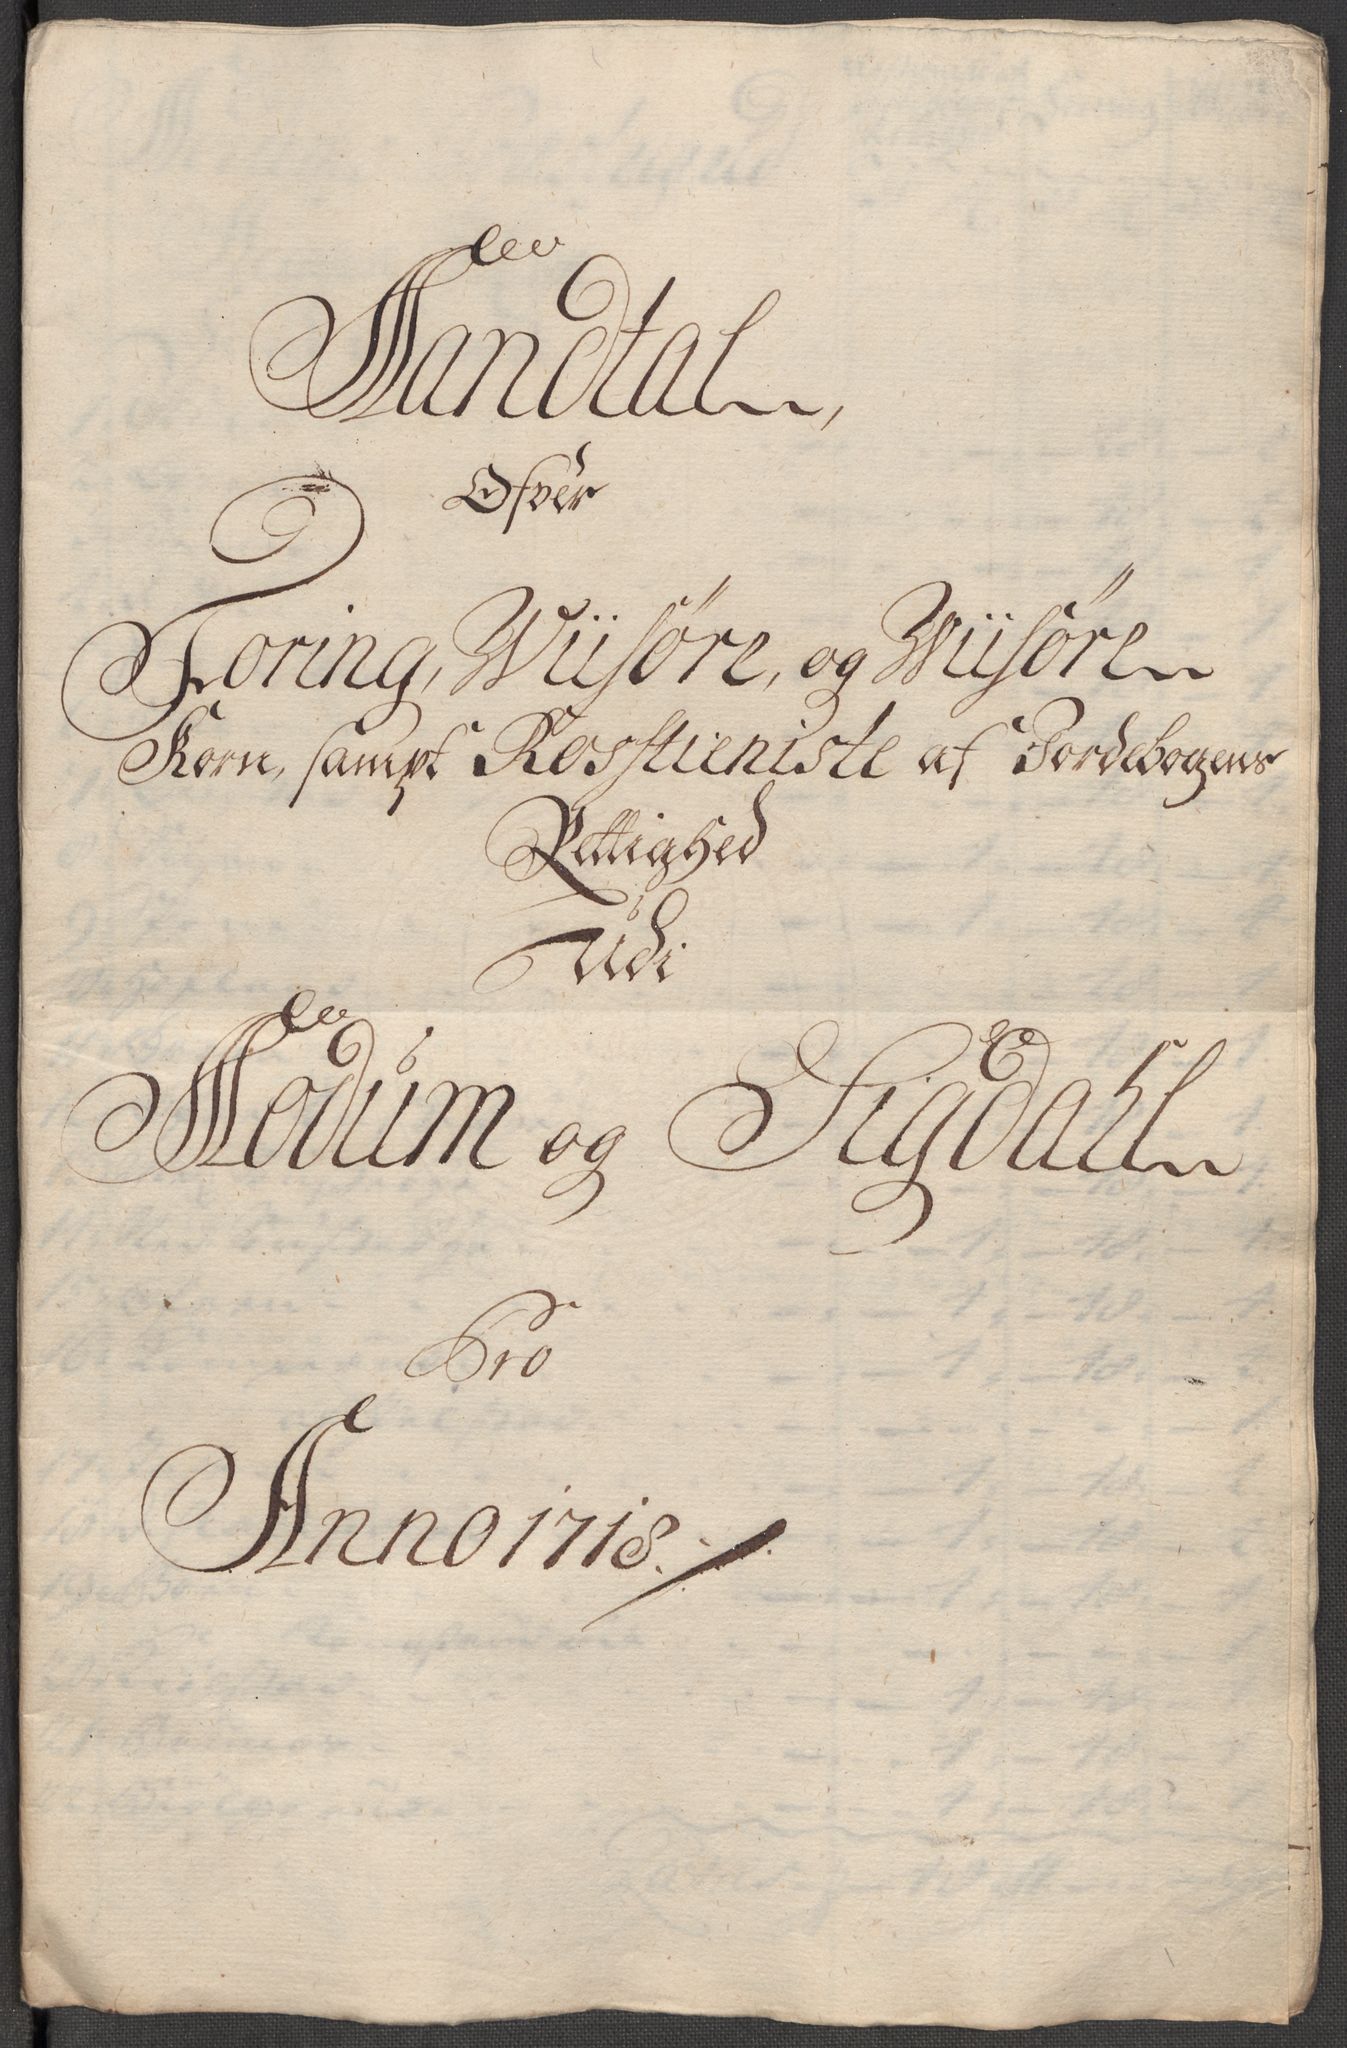 Mandtal,
Ofver
Foring, Wiisøre, og Wiisøre
Korn, sampt Rosstieniste af Jordebogens
Rettighed
Udi
Modum og Sigdahl
Pro
Anno 1718.